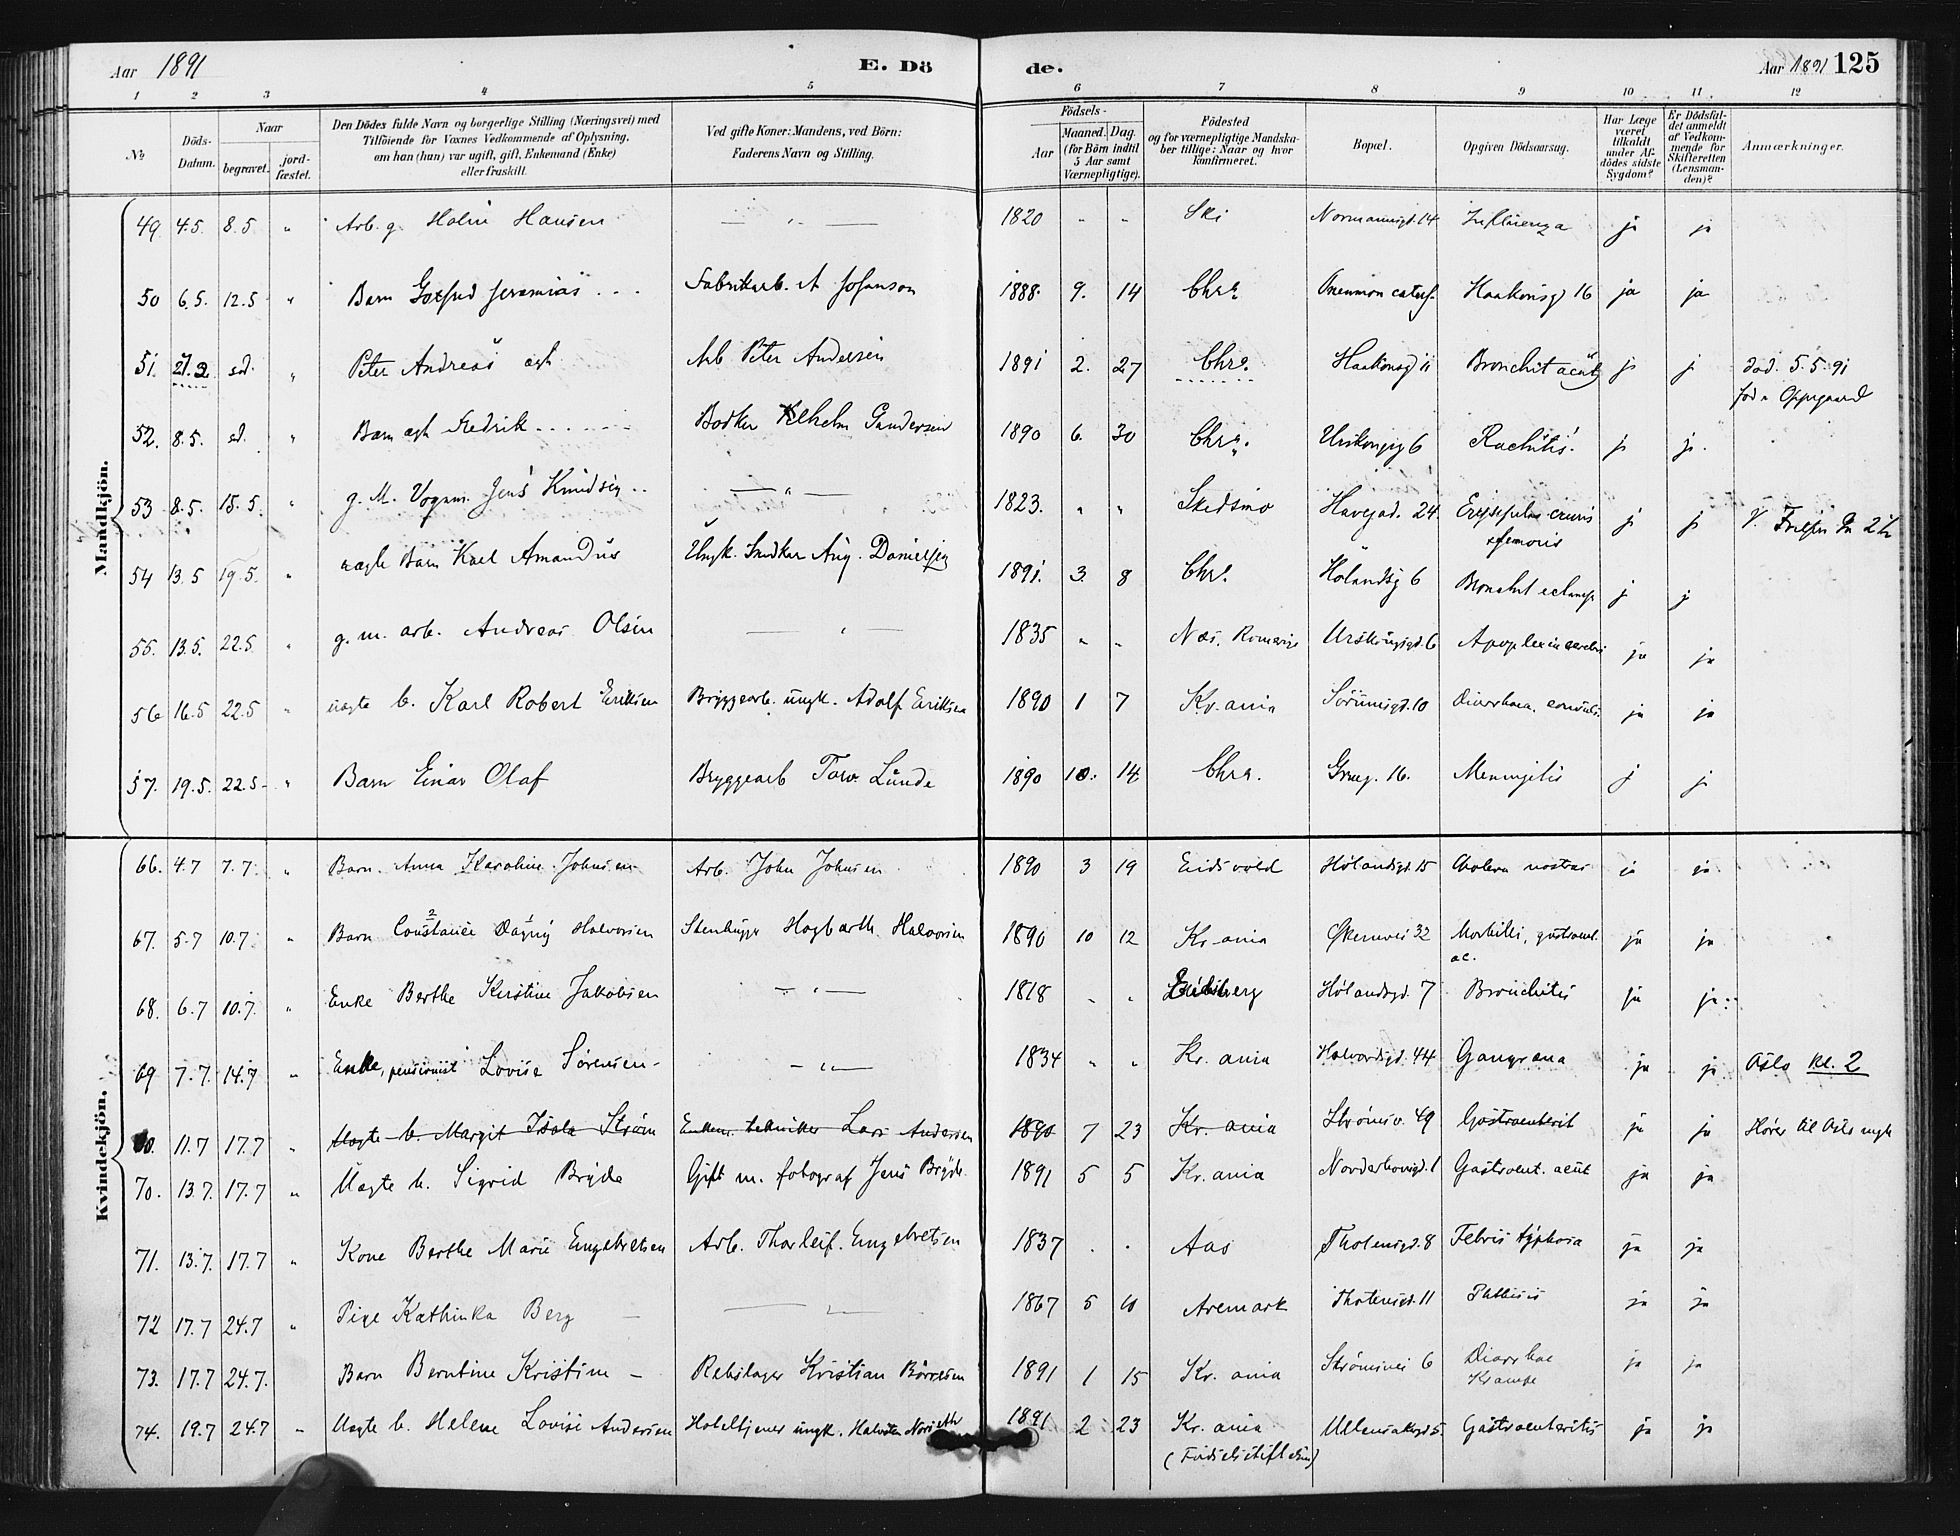 Aar 1891 E. Dö de. Aar 1891 125
1 2 3 4 5 6 7 8 9 10 11 12
No
Döds-Datum.
Naar
begravet.
jord-fæstet.
Den Dödes fulde Navn og borgerlige Stilling (Næringsvei) med
Tilföiende for Voxnes Vedkommende af Oplysning,
om han (hun) var ugift, gift, Enkemand (Enke)
eller fraskilt.
Ved gifte Koner: Mandens, ved Börn:
Faderens Navn og Stilling.
Födsels-
Aar
Maaned. Dag.
(for Börn indtil
5 Aar samt
Værnepligtige).
Födested
og for værnepligtige Mandska-
ber tillige: Naar og hvor
konfirmeret.
Bopæl.
Opgiven Dödsaarsag.
Har Læge
været
tilkaldt
under Af-
dödes sidste
Sygdom?
Er Dödsfal-
det anmeldt
af Vedkom-
mende for
Skifteretten
(Lensman-
den)?
Anmærkninger.
Mandkjön.
49. 4.5. 8.5 " Arb. g. Hansen — " — 1820 - - Ski Normannsgd. 14 Influenza ja ja
50 6.5. 12.5 " Barn Jeremias . . . Fabrikarb. A Johanson 1888. 9. 14 Chra. Pneumon catarh. Haakonsg 16 ja ja
51. 27.2 sd. " Peter Andreas ægt Arb. Peter Andersen 1891 2. 27 Chra. Haakonsg 11 Bronchit acut j j död. 5.5.91
fød i Oppegaard
52. 8.5. sd. " Barn ægt Fredrik . . . Bødker Vilhelm Gundersen 1890 6. 30 Chra. Urskougsg 6 Rachitis. j j.
53 8.5. 15.5. " g. M. Vognm. Jens Knudsen . . — " — 1823. " " Skedsmo Havegad. 24. Erysipelas cruris
femoris j j
54 13.5 19.5. " uægte Barn Karl Amandus Ungk. Snedker Aug. Danielsen 1891. 3. 8 Chr. Hölandsg 6 Bronchit j j
55. 13.5. 22.5. " g. m. arb. Andreas Olsen — " — 1835 " " Næs, Romerige Urskougsgd. 6 Apoplexia cerebri ja ja
56 16.5 22.5 " uægte b. Karl Robert Eriksen Bryggearb. ungk. Adolf Eriksen 1890 1 7 Kr.ania Sörumsgd. 10 Diarrhoea. convuls. ja ja
57. 19.5. 22.5 - " Barn Einar Olaf Bryggearb Lunde 1890 10. 14 Chra. 16. Meningitis j j
Kvindekjön.
66. 4.7 7.7. " Barn. Anna Karoline Johnsen Arb. John Johnsen 1890 3 19 Eidsvold Hølandsgd. 15 Cholera nostras ja ja
67. 5.7 10.7. " Barn Constance Dagny Halvorsen Stenhugger Hagbarth Halvorsen 1890 10 12 Kr.ania Økernvei 32 Morbilli, gastroent.
ac. ja ja
68. 6.7 10.7. " Enke Berthe Kirstine Jakobsen — " — 1818 " " Hølandsgd. 7 Bronchitis ja ja
69 7.7. 14.7 " Enke, pensionist Lovise Sørensen - — " — 1834 " " Kr. ania Halvardsgd. 44 Gangræna ja ja Oslo kl. 2
11.7 17.7 " Uægte b. Margit Strøm tekniker Lars Andersen 1890 7 23 Kr. ania Strømsv. 49 Gastroenterit ja ja Hører til Oslo
70. 13.7. 17.7 " Uægte b. Sigrid Bryde Gift m. fotograf Jens Bryde 1891 5 5 Kr. ania Norderhovsgd. 1 Gastroent. acut ja ja
71. 13.7. 17.7 " Kone Berthe Marie Engebretsen Arb. Thorleif Engebretsen 1837 . . Aas Thotensgd. 8 Febris typhosa ja ja
72 17.7 24.7 " Pige Kathinka Berg — — " 1867 5 10 Aremark Thotensgd. 11 Phthisis ja ja
73. 17.7 24.7. Barn Berntine Kristine - Rebslager Kristian Børresen 1891 1 15 Kr. ania Strømsvei 6 Diarrhoe
Krampe ja ja
74. 19.7 24.7 " Uægte b. Helene Lovise Andersen Hoteltjener ungk. 1891 2 23 Kr. ania Ullensakergd 5. Gastroenteritis ja ja
(Fødselsstiftelsen)